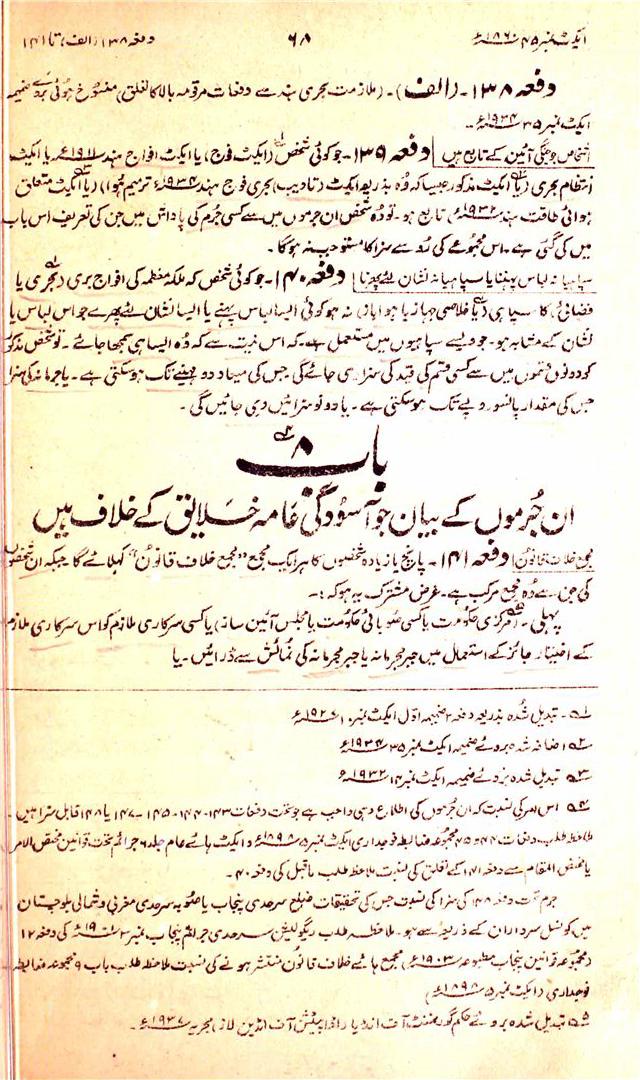 ایکٹ نمبر ۴۵ ۱۸۶۰ء ۶۸ دفعہ ۱۳۸ (الف) تا ۱۴۱
دفعہ ۱۳۸۔ (الف)۔ (ملازمت بحری ہند سے دفعات مرقومہ بالا کا تعلق) منسوخ ہوئی بروئے ضمیمہ
ایکٹ نمبر ۳۵ ۱۹۳۴ء۔
اشخاص جو جنگی آئین کے تابع ہیں دفعہ ۱۳۹۔ جو کوئی شخص (ایکٹ فوج) یا ایکٹ افواج ہند ۱۹۱۱ء یا ایکٹ
انتظام بحری (یا ایکٹ مذکور جیسا کہ وہ بذریعہ ایکٹ (تادیب) بحری فوج ہند ۱۹۳۴ء ترمیم ہوا) (یا ایکٹ متعلق
ہوائی طاقت ہند ۱۹۳۲ء) تابع ہو۔ تو وہ شخص ان جرموں میں سے کسی جرم کی پاداش میں جن کی تعریف اس باب
میں کی گئی ہے۔ اس مجموعے کی رُو سے سزا کا مستوجب نہ ہوگا۔
سپاہیانہ لباس پہننا یا سپاہیانہ نشان لئے پھرنا دفعہ ۱۴۰۔ جو کوئی شخص کہ ملکہ معظمہ کی افواج بری (بحری یا
فضائی) کا سپاہی (یا خلاصی جہاز یا ہواباز) نہ ہو کوئی ایسا لباس پہنے یا ایسا نشان لئے پھرے جو اس لباس یا
نشان کے مشابہ ہو۔ جو ویسے سپاہیوں میں مستعمل ہے۔ کہ اس نیت سے کہ وہ ایسا ہی سمجھا جائے۔ تو شخص مذکور
کو دونوں قسموں میں سے کسی قسم کی قید کی سزا دی جائے گی۔ جس کی میعاد دو مہینے تک ہو سکتی ہے۔ یا جرمانہ کی سزا
جس کی مقدار پانسو روپے تک ہو سکتی ہے۔ یا دونو سزائیں دی جائیں گی۔
باب ۸
ان جُرموں کے بیان جو آسودگیٔ عامہ خلایق کے خلاف ہیں
مجمع خلاف قانون دفعہ ۱۴۱۔ پانچ یا زیادہ شخصوں کا ہر ایک مجمع "مجمع خلاف قانون" کہلائے گا جبکہ ان شخصوں
کی جن سے وُہ مجمع مرکب ہے۔ غرض مشترک یہ ہو کہ:۔
پہلی۔ (مرکزی حکومت یا کسی صوبائی حکومت یا مجلس آئین ساز) یا کسی سرکاری ملازم کو اس سرکاری ملازم
کے اختیار جائز کے استعمال میں جبر مجرمانہ یا جبر مجرمانہ کی نمائش سے ڈرائیں۔ یا
۱۔ تبدیل شُدہ بذریعہ دفعہ ۲ ضمیمہ اوّل ایکٹ نمبر ۱۰ ۱۹۲۶ء
۲۔ اضافہ شدہ بروئے ضمیمہ ایکٹ نمبر ۳۵ ۱۹۳۴ء
۳۔ تبدیل شدہ بروئے ضمیمہ ایکٹ نمبر ۱۴ ۱۹۳۲ء
۴۔ اس امر کی نسبت کہ ان جُرموں کی اطلاع دہی واجب ہے جو تحت دفعات ۱۴۳-۱۴۴-۱۴۵-۱۴۷ یا ۱۴۸ قابل سزا ہیں۔
ملاحظہ طلب دفعات ۴۴ و ۴۵ مجموعہ ضابطہ فوجداری ایکٹ نمبر ۵ ۱۸۹۸ء (و ایکٹ ہائے عام جلد ۶) جرائم تحت قوانین مختص الامر
یا مختص المقام سے دفعہ ۱۴۱ کے تعلق کی نسبت ملاحظہ طلب ماقبل کی دفعہ ۴۰۔
جرم تحت دفعہ ۱۴۸ کی سزا کی نسبت جس کی تحقیقات ضلع سرحدی پنجاب یا صوبہ سرحدی مغربی و شمالی بلوچستان
میں کونسل سرداران کے ذریعہ سے ہو۔ ملاحظہ طلب ریگولیشن سرحدی جرائم پنجاب، نمبر ۳ ۱۹۰۱ء کی دفعہ ۱۲
(مجموعہ قوانین پنجاب مطبوعہ ۱۹۰۳ء) مجمع ہائے خلاف قانون منتشر ہونے کی نسبت ملاحظہ طلب باب ۹ مجموعہ ضابطہ
فوجداری (ایکٹ نمبر ۵ ۱۸۹۸ء)
۵۔ تبدیل شدہ بروئے حکم گورنمنٹ آف انڈیا (اڈاپٹیشن آف انڈین لاز) مجریہ ۱۹۳۷ء۔